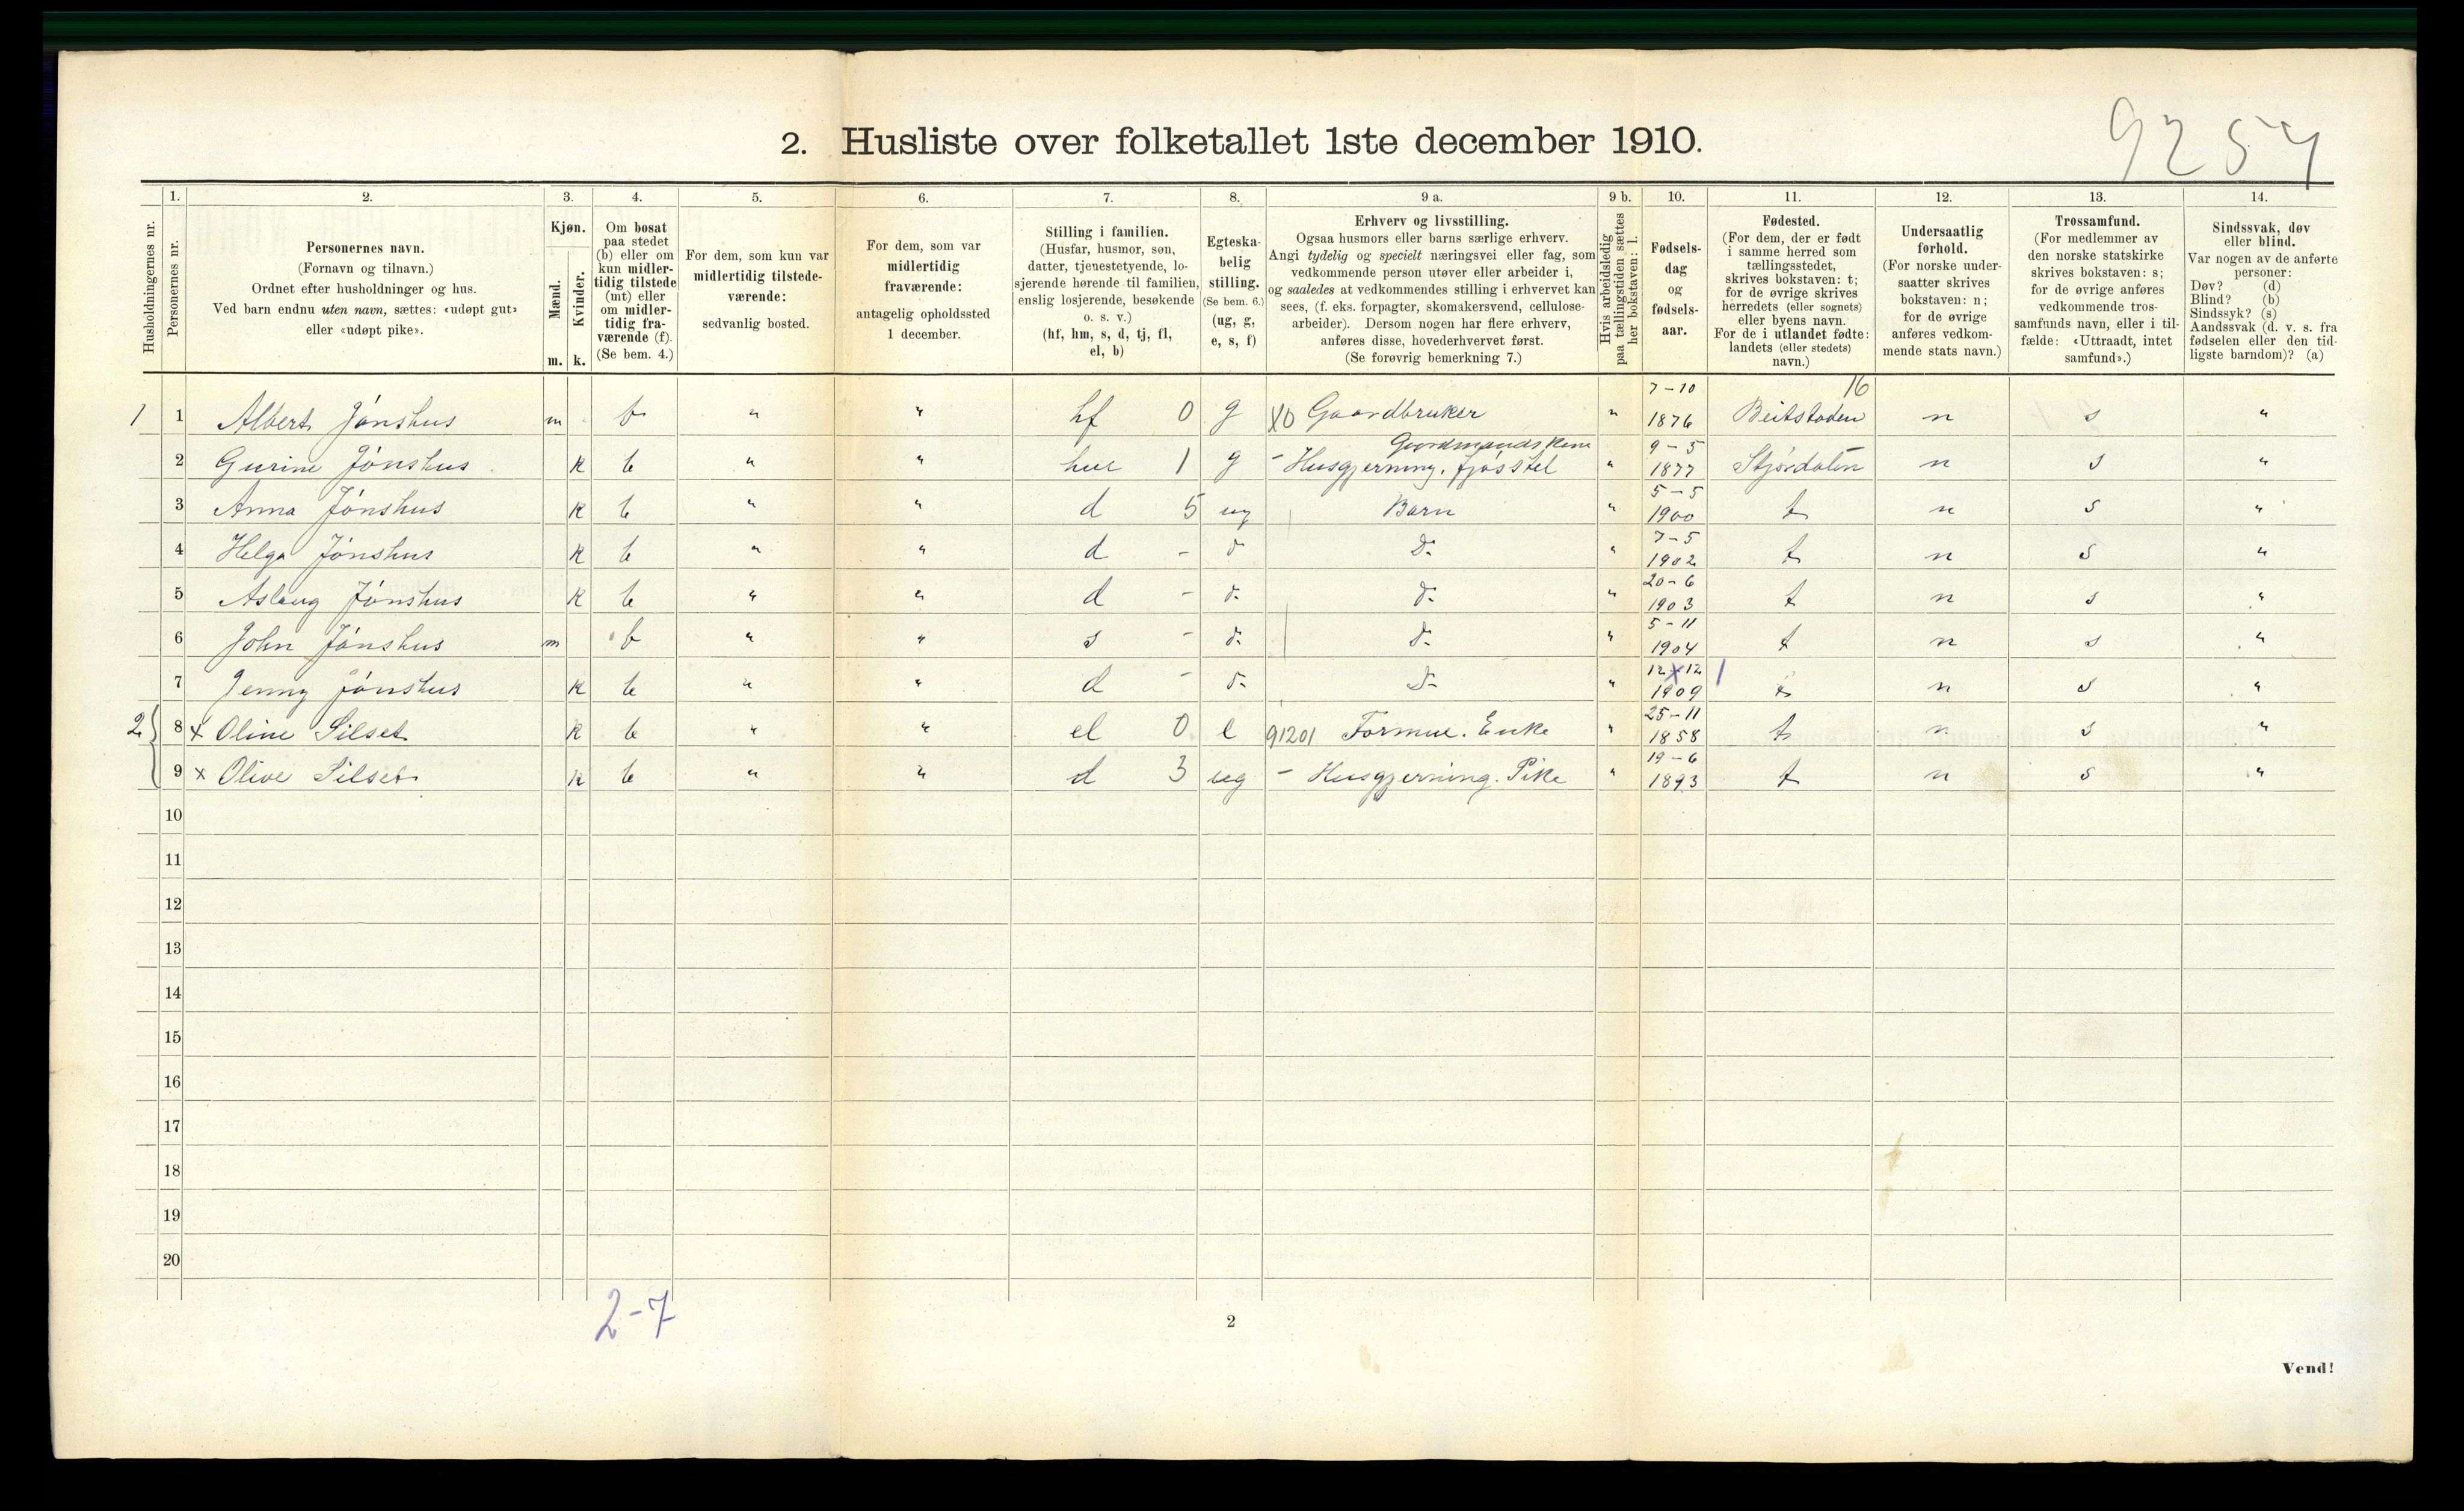 9257
2. Husliste over folketallet 1ste december 1910.
Husholdningernes nr.
1. Personernes nr.
2. Personernes navn.
(Fornavn og tilnavn.)
Ordnet efter husholdninger og hus.
Ved barn endnu uten navn, sættes: «udøpt gut»
eller «udøpt pike».
3. Kjøn.
Mænd. m.
Kvinder. k.
4. Om bosat
paa stedet
(b) eller om
kun midler-
tidig tilstede
(mt) eller
om midler-
tidig fra-
værende (f).
(Se bem. 4.)
5. For dem, som kun var
midlertidig tilstede-
værende:
sedvanlig bosted.
6. For dem, som var
midlertidig
fraværende:
antagelig opholdssted
1 december.
7. Stilling i familien.
(Husfar, husmor, søn,
datter, tjenestetyende, lo-
sjerende hørende til familien,
enslig losjerende, besøkende
o. s. v.)
(hf, hm, s, d, tj, fl,
el, b)
8. Egteska-
belig
stilling.
(Se bem. 6.)
(ug, g,
e, s, f)
9 a. Erhverv og livsstilling.
Ogsaa husmors eller barns særlige erhverv.
Angi tydelig og specielt næringsvei eller fag, som
vedkommende person utøver eller arbeider i,
og saaledes at vedkommendes stilling i erhvervet kan
sees, (f. eks. forpagter, skomakersvend, cellulose-
arbeider). Dersom nogen har flere erhverv,
anføres disse, hovederhvervet først.
(Se forøvrig bemerkning 7.)
9 b. Hvis arbeidsledig
paa tællingstiden sættes
her bokstaven: l.
10. Fødsels-
dag
og
fødsels-
aar.
11. Fødested.
(For dem, der er født
i samme herred som
tællingsstedet,
skrives bokstaven: t;
for de øvrige skrives
herredets (eller sognets)
eller byens navn.
For de i utlandet fødte:
landets (eller stedets)
navn.)
12. Undersaatlig
forhold.
(For norske under-
saatter skrives
bokstaven: n;
for de øvrige
anføres vedkom-
mende stats navn.)
13. Trossamfund.
(For medlemmer av
den norske statskirke
skrives bokstaven: s;
for de øvrige anføres
vedkommende tros-
samfunds navn, eller i til-
fælde: «Uttraadt, intet
samfund».)
14. Sindssvak, døv
eller blind.
Var nogen av de anførte
personer:
Døv? (d)
Blind? (b)
Sindssyk? (s)
Aandssvak (d. v. s. fra
fødselen eller den tid-
ligste barndom)? (a)
1 1 Albert Jónshus m b " " hf 0 g X0 Gaardbruker " 7-10 1876 16 Beitstaden n s "
2 Gurine Jónshus k b " " hue 1 g - Husgjerning, fjósstel Gaardmandskone " 9-5 1877 Stjórdalen n s "
3 Anna Jónshus k b " " d 5 ug Barn " 5-5 1900 t n s "
4 Helga Jónshus k b " " d - d- d- " 7-5 1902 t n s "
5 Aslaug Jónshus k b " " d - d- d- " 20-6 1903 t n s "
6 John Jónshus m b " " s - d- d- " 5-11 1904 t n s "
7 Jenny Jónshus k b " " d - d- d- " 12-12 1909 t n s "
2 8 x Oline Silset k b " " el 0 e 91201 Formue. Enke " 25-11 1858 t n s "
9 x Olive Silset k b " " d 3 ug - Husgjerning. Pike " 19-6 1893 t n s "
10
11
12
13
14
15
16
17
18
19
20
2-7
2
Vend!